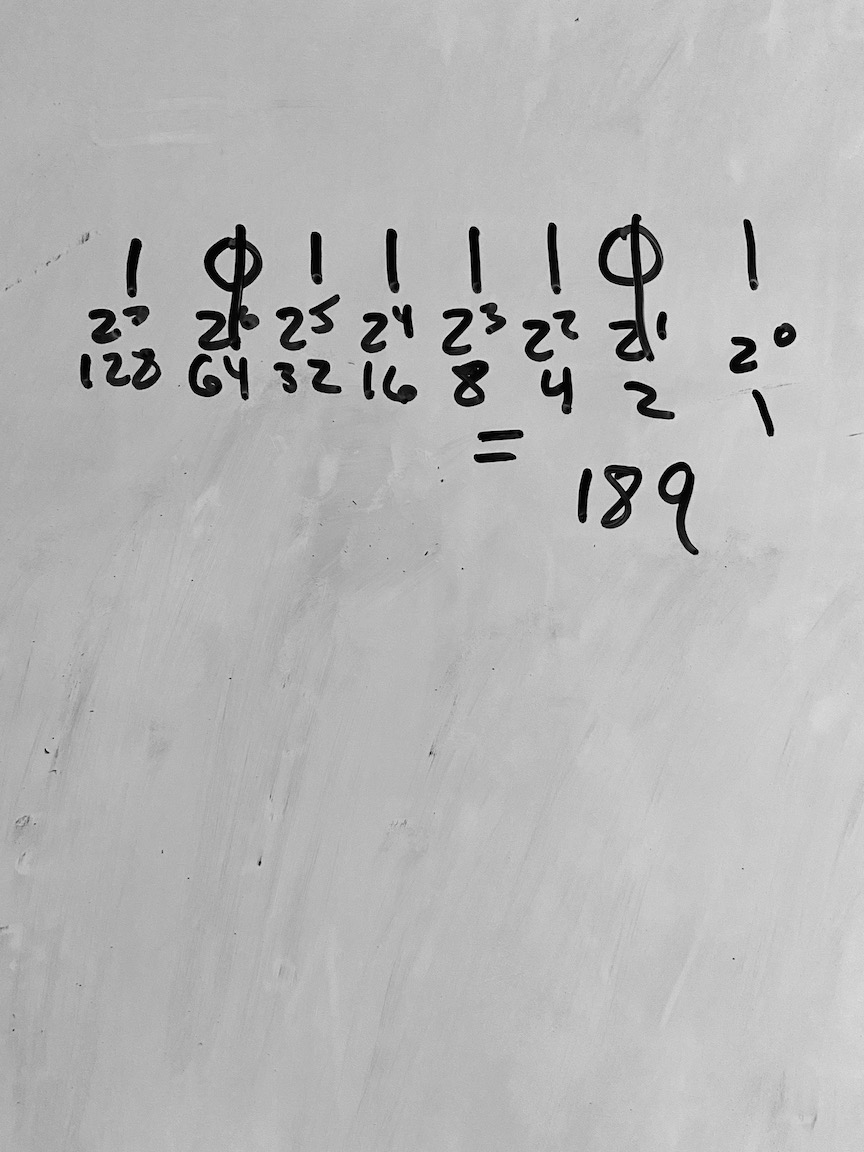 1 0 1 1 1 1 0 1
2⁷ 2⁶ 2⁵ 2⁴ 2³ 2² 2¹ 2⁰
128 64 32 16 8 4 2 1
= 189